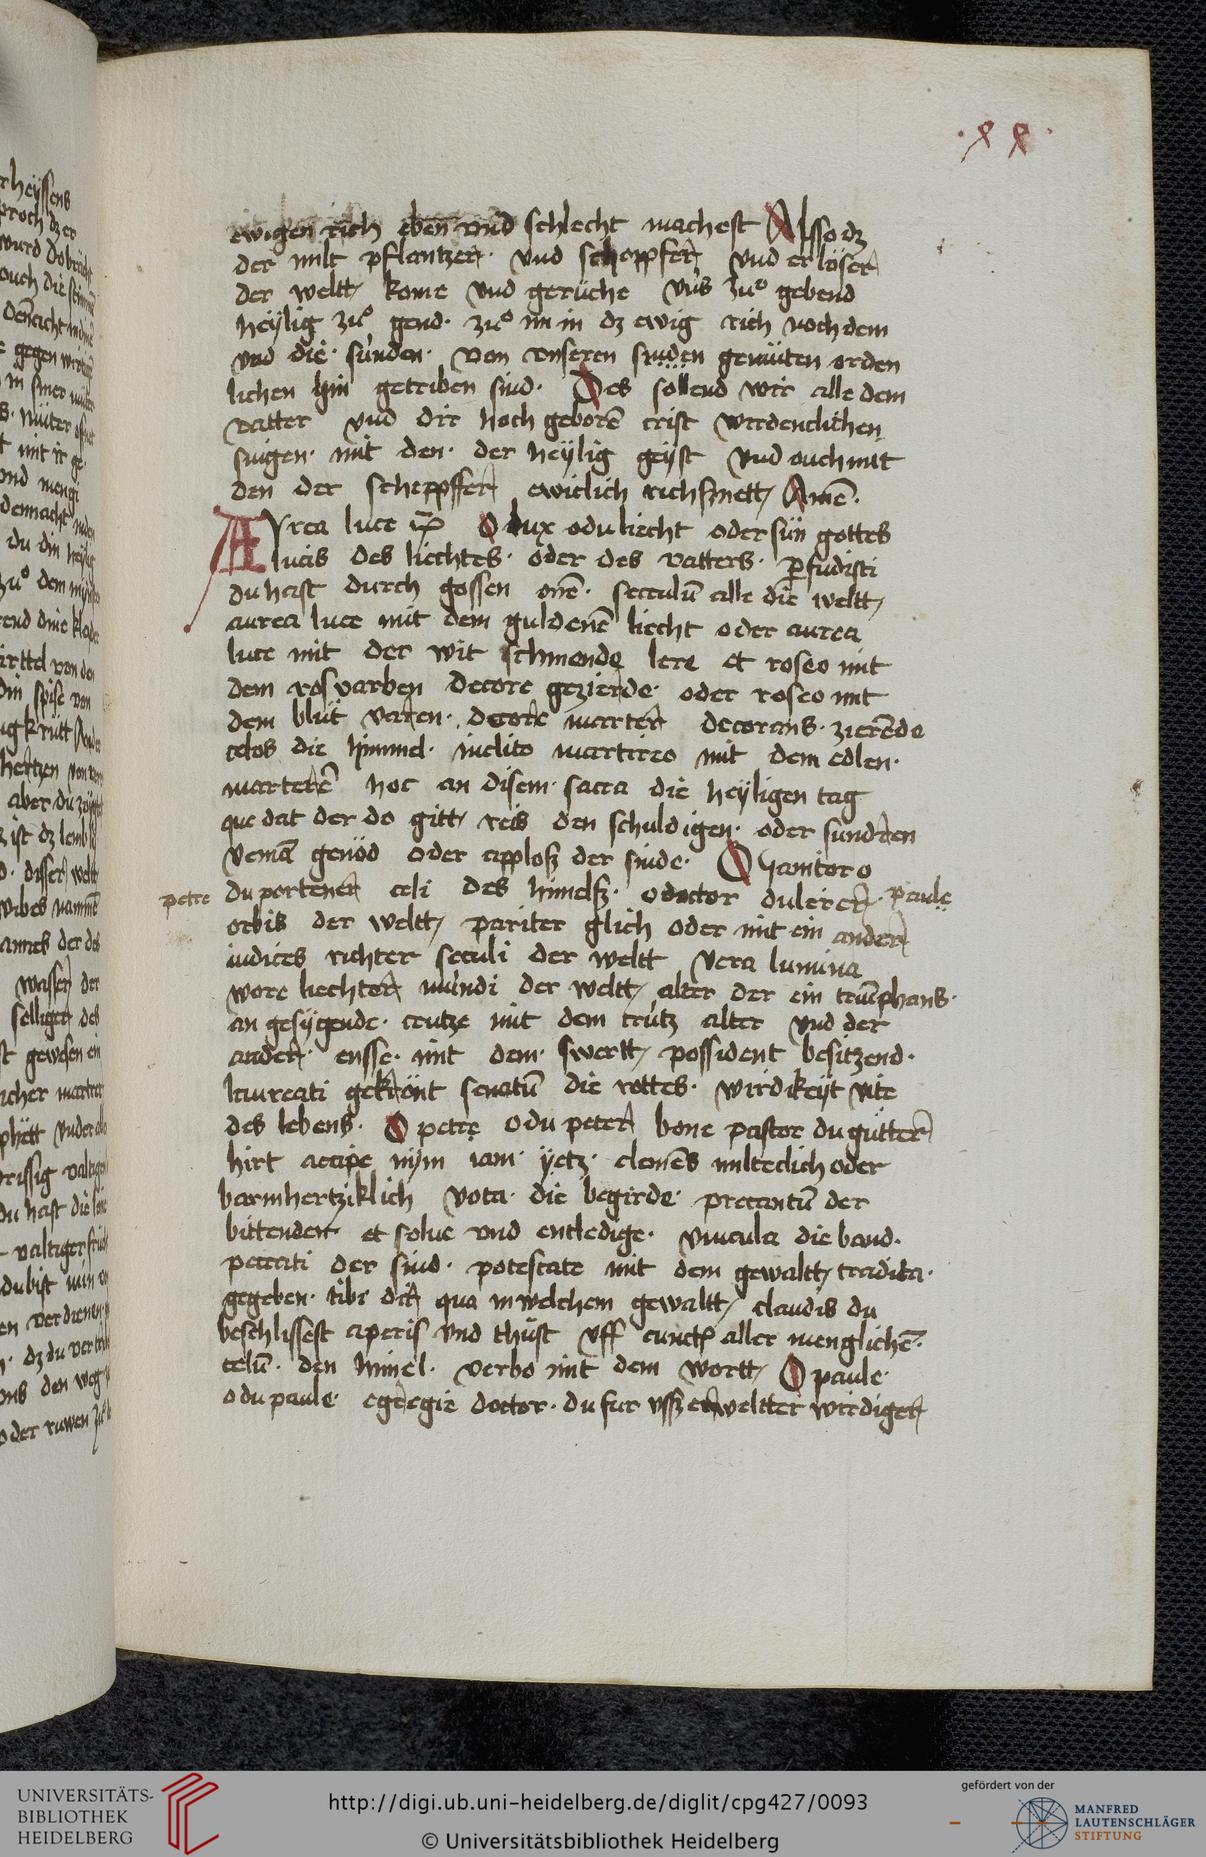 · x x ·
ewigen rich eben vnd schlecht machest Alsso dz
der milt pflantzer · vnd scheppfer vnd erlöser
der weltt kome vnd gerüche vns zuͦ gebend
heÿlig zuͦ gend · zuͦ im in dz ewig rich noch dem
vnd die · sunden · von vnseren sinden gemüten orden
lichen hin getriben sind · Des sollend wir alle dem
vatter vnd dir hoch geborē crist wirdenclichen
singen · mit den · der heÿlig geÿst vnd ouch mit
den der scheppffer ewiclich richsinett Amē ·
AVrea luce &c O dux o du liecht oder sün gottes
lucis des liechtes · oder des vatters · ꝑfudisti
du hast durch gossen om̄e · seculū alle die weltt
aurea luce mit dem guldenē liecht oder aurea
luce mit der wit schinende lere et roseo mit
dem rosvarben decore gezierde · oder roseo mit
dem blüt varen · decore marter decorans · zierēde
celos die himmel · inclito martirio mit dem edlen ·
marterē hoc an disem · sacra die heÿligen tag
que dat der do gitt reis den schuldigen · oder sundren
veniā genod oder applosz der sinde · O Ianitor o
petre du portener celi des himelsz · o doctor du lerer · paule
orbis der weltt pariter glich oder mit ein ander
iudices richter seculi der weltt vera lumina
wore liechter mundi der weltt alter der ein triūphans ·
an gesÿgende · crutze mit dem crütz alter vnd der
ander · ensse · mit dem · swertt possident besitzend ·
laureati gekrönt senatū die rottes · wirdikeÿt vite
des lebens · O petre o du peter bone pastor du gütter
hirt accipe nÿm iam · ÿetz · clemēs milteclich oder
barmhertziklich vota · die begirde · precantū der
bittenden et solue vnd entledige · vincula die band ·
peccati der sind · potestate mit dem gewaltt tradita ·
gegeben · tibi dir qua in welchem gewaltt claudis du
beschlissest aperis vnd thüst vff cunctꝭ aller menglichē ·
celū · den himel · verbo mit dem wortt O paule ·
o du paule · egregie doctor · du fur vsz erwelter wirdiger
UNIVERSITÄTS-
BIBLIOTHEK
HEIDELBERG
http://digi.ub.uni-heidelberg.de/diglit/cpg427/0093
© Universitätsbibliothek Heidelberg
gefördert von der
MANFRED
LAUTENSCHLÄGER
STIFTUNG